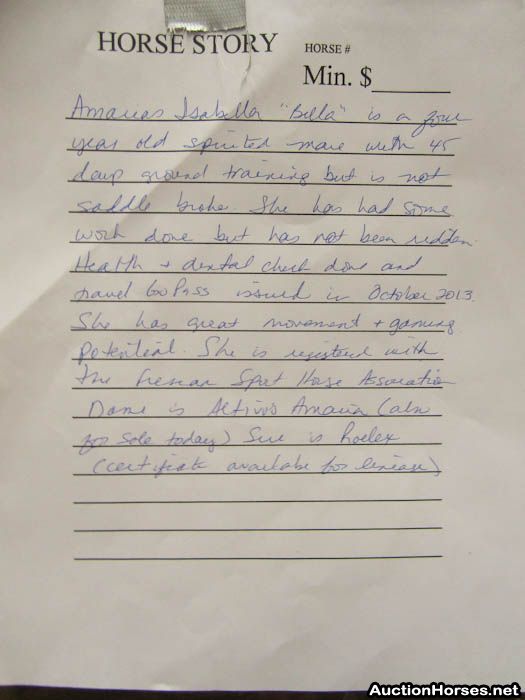 HORSE STORY
HORSE #
Min. $
Amarias Isabella "Bella" is a four
year old spirited mare with 45
days ground training but is not
saddle broke. She has had some
work done but has not been ridden.
Health + dental check done and
travel GoPass issued in October 2013.
She has great movement + gaming
potential. She is registered with
the Iberian Sport Horse Association
Dame is Altivos Amaria (also
for sale today) Sire is Roelex
(certificate available for lineage)
AuctionHorses.net